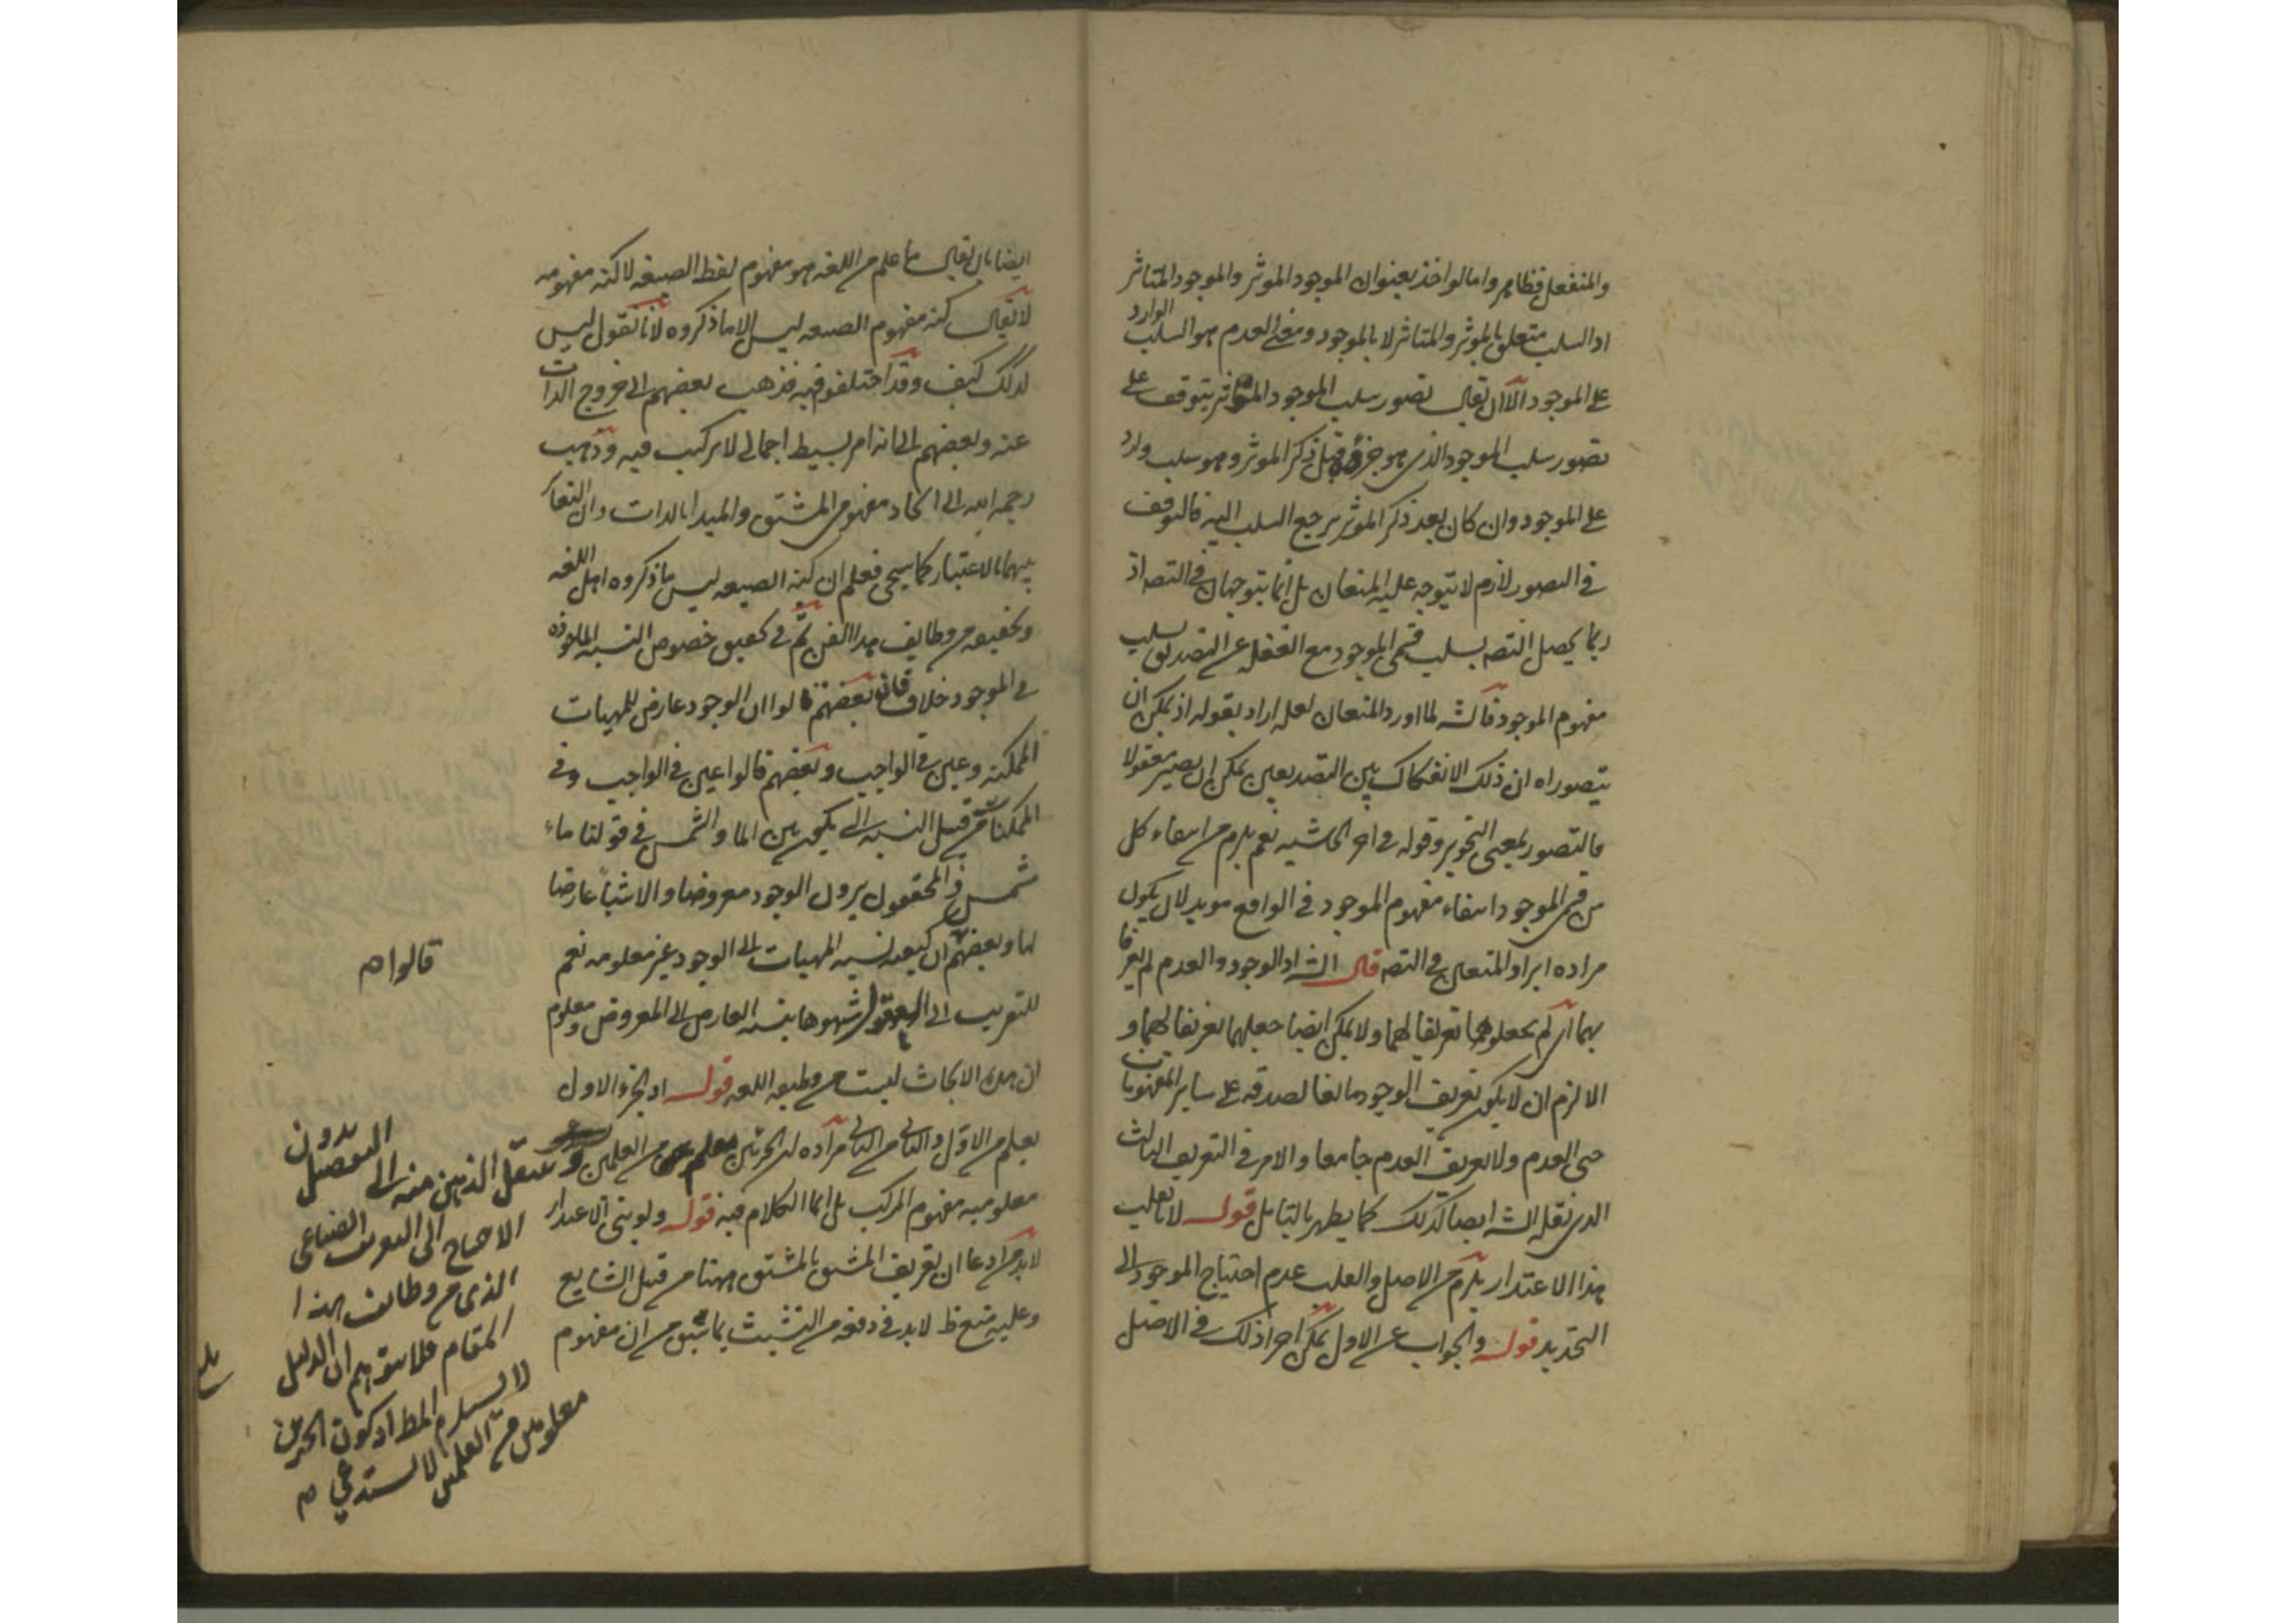 والمنفعل فظاهر واما لو اخذ بعنوان الموجود الموثر والموجود المتاثر
اذ السلب متعلق بالموثر والمتاثر لا بالموجود ومعنى العدم هو السلب الوارد
على الموجود الا ان يقال تصور سلب الموجود المتاثر يتوقف على
تصور سلب الموجود الذى هو جزؤه قبل ذكر الموثر وهو سلب ورد
على الموجود وان كان بعد ذكر الموثر يرجع السلب اليه فالتوقف
فى التصور لازم لا يتوجه عليه المنعان بل انما يتوجهان فى التصـ اذ
ربما يحصل التصـ بسلب قسمى الموجود مع الغفلة عن التصديق بسلب
مفهوم الموجود فالشـ لما اورد المنعان لعل اراد بقوله اذ يمكن ان
يتصوراه ان ذلك الانفكاك بين التصديقين يمكن ان يصير معقولا
فالتصور بمعنى التجويز وقوله فى اخر الحاشيه نعم يلزم من انتفاء كل
من قسمى الموجود انتفاء مفهوم الموجود فى الواقع مويد لان يكون
مراده ايراد المنعين فى التصـ قال الشـ اذ الوجود والعدم لم يعرفا
بهما اى لم يجعلوهما تعريفا لهما ولا يمكن ايضا جعلهما تعريفا لهما و
الا لزم ان لا يكون تعريف الوجود مانعا لصدقه على ساير المفهومات
حتى العدم ولا تعريف العدم جامعا والامر فى التعريف الثالث
الذى نقله الشـ ايضا كذلك كما يظهر بالتامل قوله لانا نقلب
هذا الاعتذار يلزم من الاصل والقلب عدم احتياج الموجود الى
التحديد قوله والجواب عن الاول يمكن اجراء ذلك فى الاصل
ايضا بان يقال ما علم من اللغه هو مفهوم لفظ الصيغه لا كنه مفهومه
لا يقال كنه مفهوم الصيغه ليس الا ما ذكروه لانا نقول ليس
كذلك كيف وقد اختلفوا فيه فذهب بعضهم الى خروج الذات
عنه وبعضهم الى انه امر بسيط اجمالى لا تركيب فيه وذهب
رحمه الله الى اتحاد مفهومى المشتق والمبدا بالذات وان التغاير
بينهما بالاعتبار كما سيجى فعلم ان كنه الصيغه ليس ما ذكروه اهل اللغه
وتحقيقه من وظايف هذا الفن ثم فى تحقيق خصوص النسبه الماخوذه
فى الموجود خلاف فان بعضهم قالوا ان الوجود عارض للمهيات
الممكنه وعين فى الواجب وبعضهم قالوا عين فى الواجب وفى
الممكنات من قبيل النسبه التى يكون بين الماء والشمس فى قولنا ماء
شمس والمحققون يرون الوجود معروضا والاشياء عارضا
لها وبعضهم ان كيفيه نسبه المهيات الى الوجود غير معلومه نعم
للتقريب الى العقول شبهوها بنسبه العارض الى المعروض ومعلوم
ان هذه الابحاث ليست من وظيفه اللغه قوله اذ الجزء الاول
يعلم من الاول والثانى من الثانى مراده ان الجزئين من العلمين
معلوميه مفهوم المركب بل انما الكلام فيه قوله ولو بنى الاعتذار
لابد من ادعا ان تعريف المشتق بالمشتق ههنا من قبيل الشايع
وعليه منع ظـ لابد فى دفعه من التشبث بما سبق من ان مفهوم
قالوا م
وينتقل الذهن منه الى التفصيل بدون
الاحتياج الى التعريف الصناعى
الذى من وظايف هذا
المقام فلا يتوهم ان الدليل
لا يستلزم المط اذ كون الجزئين
معلومين من العلمين لا يستدعى م